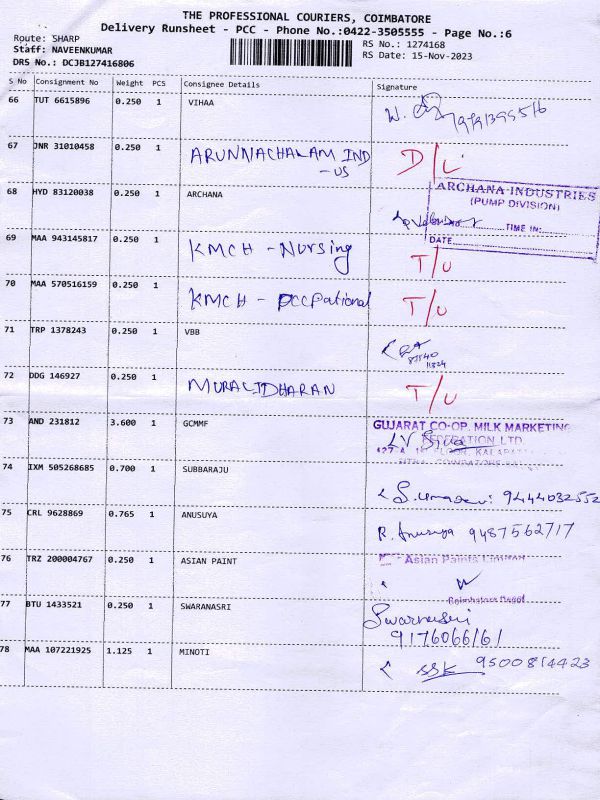 THE PROFESSIONAL COURIERS, COIMBATORE
Delivery Runsheet - PCC - Phone No.:0422-3505555 - Page No.:6
Route: SHARP
RS No.: 1274168
Staff: NAVEENKUMAR
RS Date: 15-Nov-2023
DRS No.: DCJB127416806
S No Consignment No Weight PCS Consignee Details Signature
66 TUT 6615896 0.250 1 VIHAA
67 JNR 31010458 0.250 1 ARUNNACHALAM IND D/L
-US
68 HYD 83120038 0.250 1 ARCHANA
ARCHANA INDUSTRIES
(PUMP DIVISION)
TIME IN:
DATE
69 MAA 943145817 0.250 1 KMCH - Nursing T/U
70 MAA 570516159 0.250 1 KMCH - occpational T/U
71 TRP 1378243 0.250 1 VBB
72 DDG 146927 0.250 1 MURALIDHARAN T/U
73 AND 231812 3.600 1 GCMMF
GUJARAT CO-OP. MILK MARKETING
FEDERATION LTD
74 IXM 505268685 0.700 1 SUBBARAJU
9444032552
75 CRL 9628869 0.765 1 ANUSUYA R. Anusuya 9487562717
76 TRZ 200004767 0.250 1 ASIAN PAINT
Asian Paints Limited
77 BTU 1433521 0.250 1 SWARANASRI Swarnasri
9176066161
78 MAA 107221925 1.125 1 MINOTI SSK 9500814423